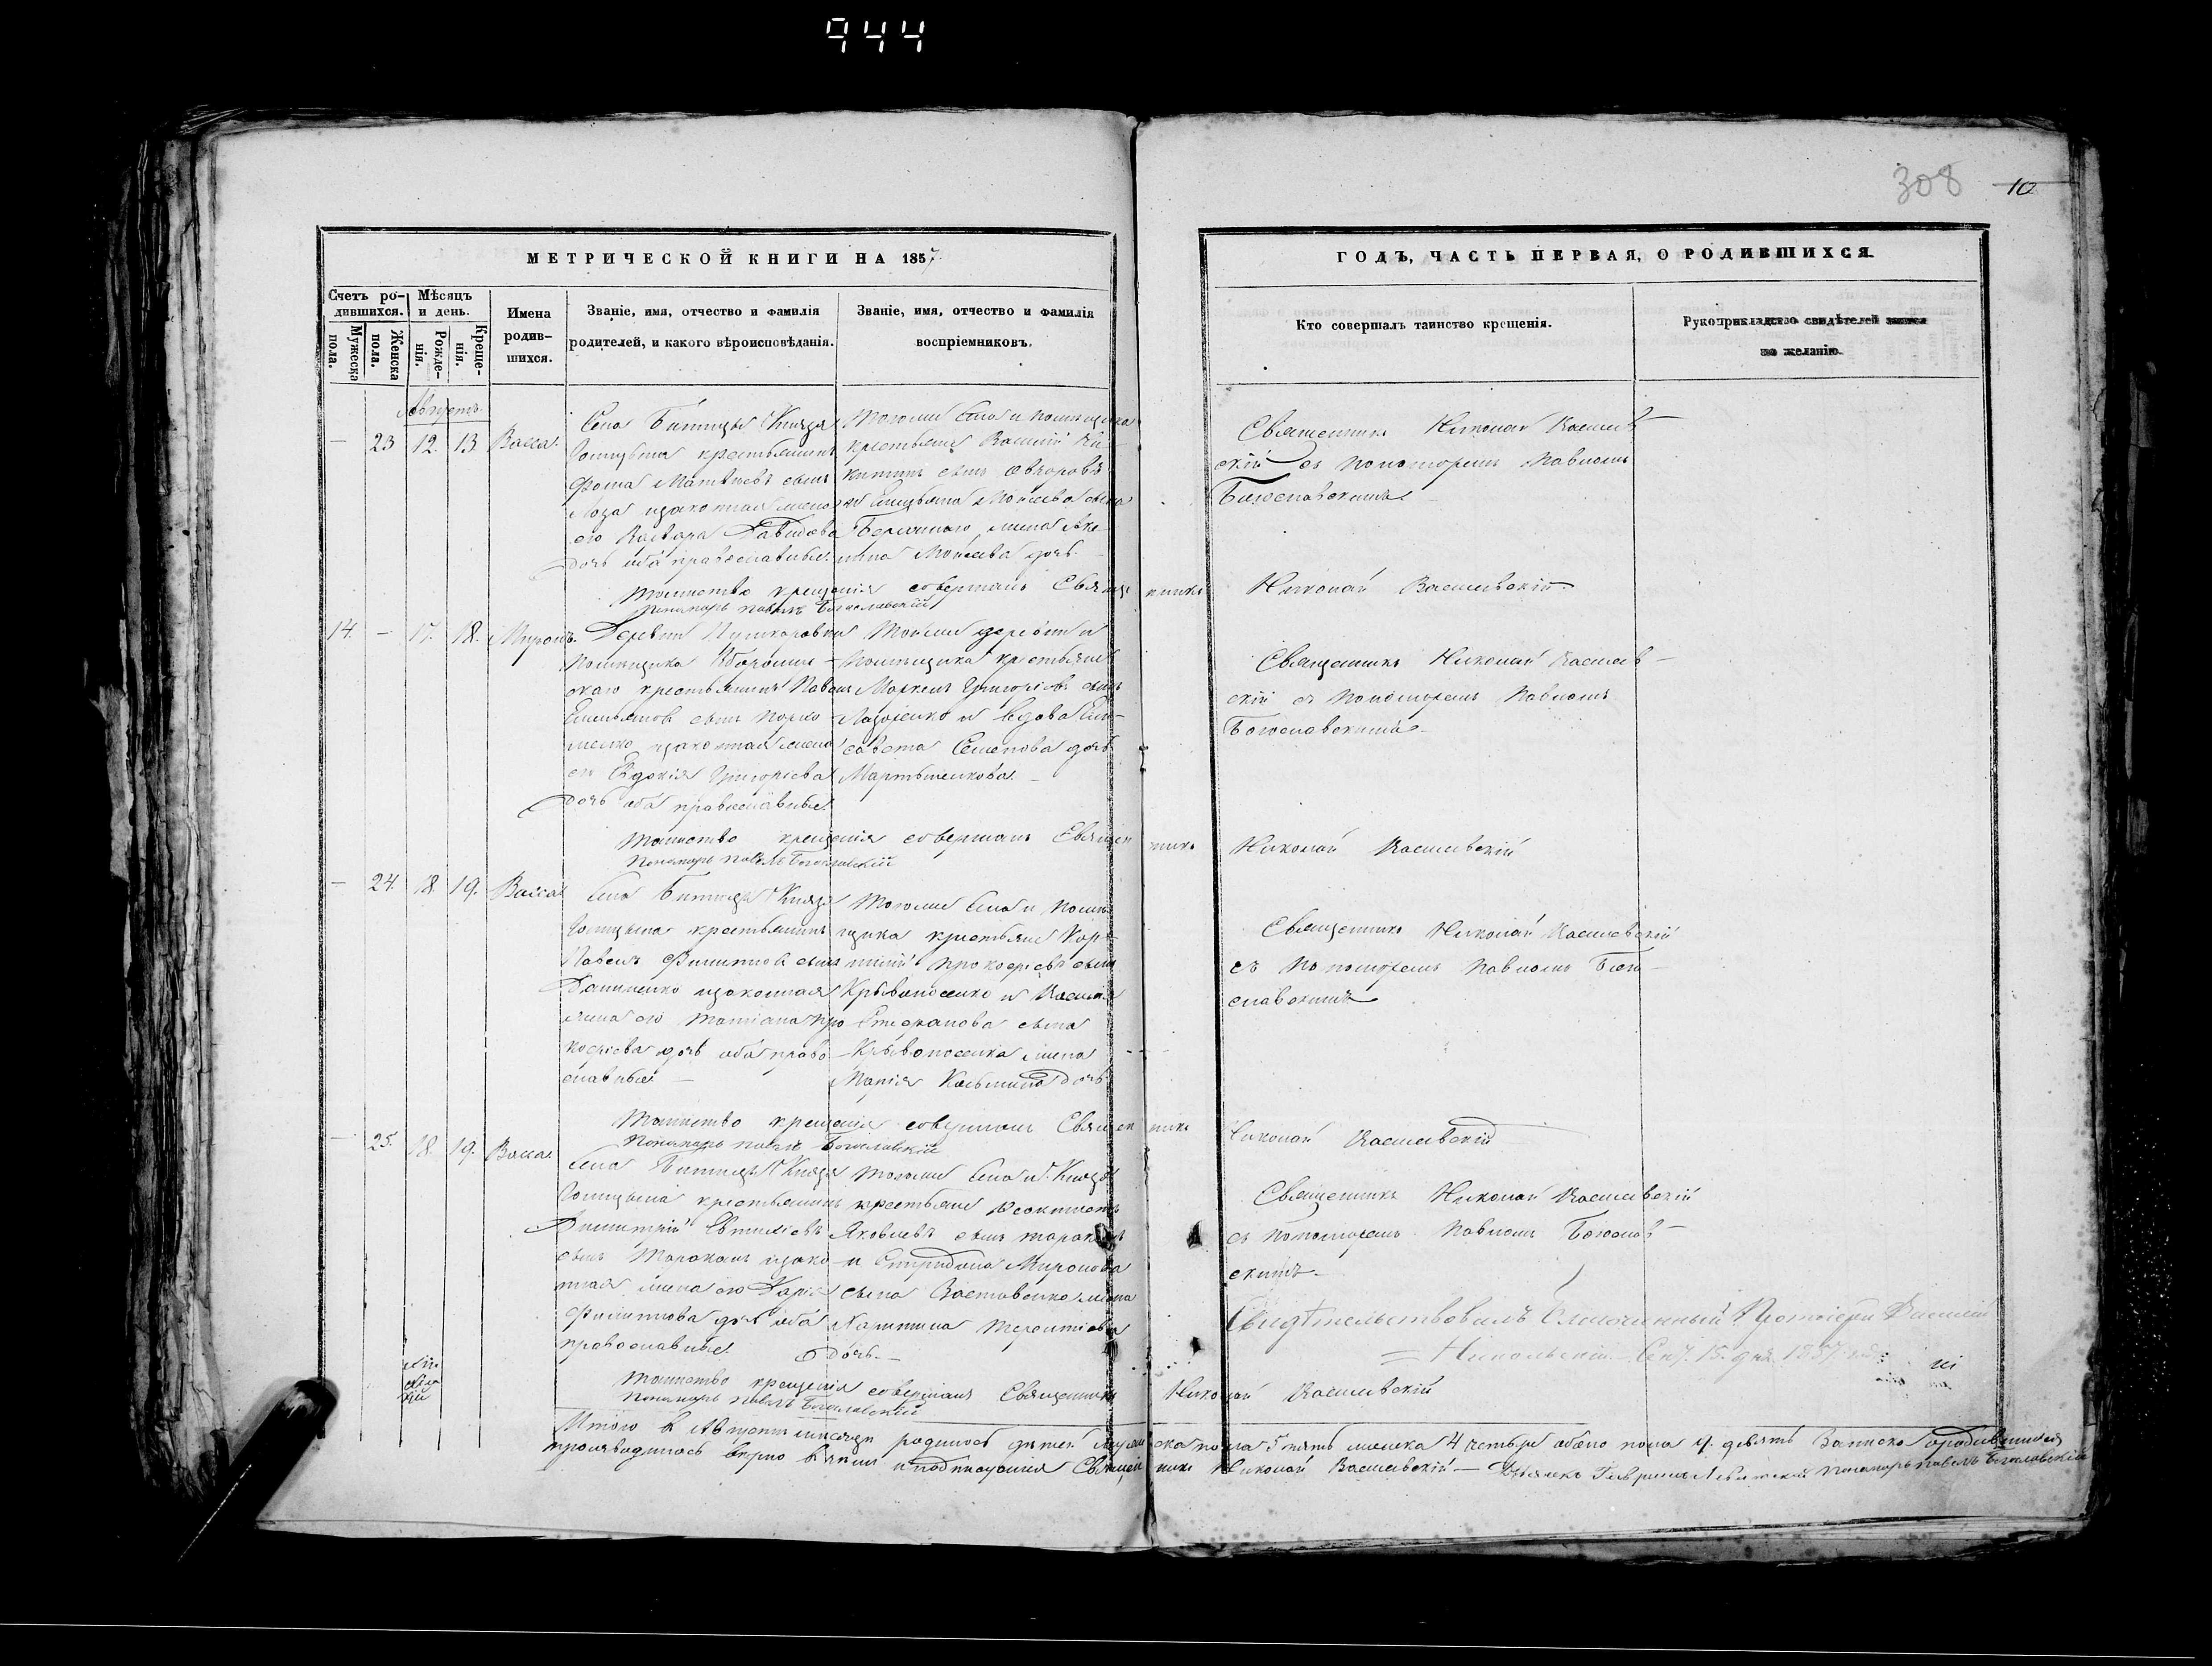 944
308 10
МЕТРИЧЕСКОЙ КНИГИ НА 1857
ГОДЪ, ЧАСТЬ ПЕРВАЯ, О РОДИВШИХСЯ.
Счетъ ро-
дившихся.
Мужеска
пола.
Женска
пола.
Мѣсяцъ
и день.
Рожде-
нія.
Креще-
нія.
Имена
родив-
шихся.
Званіе, имя, отчество и фамилія
родителей, и какого вѣроисповѣданія.
Званіе, имя, отчество и фамилія
воспріемниковъ.
Кто совершалъ таинство крещенія.
Рукоприкладство свидѣтелей записи
по желанію.
Августъ
— 23 12. 13. Васса.
Села Битицы Князя
Голицына крестьянинъ
Фома Матвѣевъ сынъ
Лоза изаконная жена
его Варвара Давидова
дочь оба православные.
Тогоже села и помѣщика
крестьяне Василій Ни-
китинъ сынъ
и Моисеева сына
жена Аке-
лина Моисеева дочь.
Священникъ Николай Василев-
скій съ пономаремъ Павломъ
Богославскимъ
Таинство крещенія совершалъ Священникъ Николай Василевскій
Пономарь Павелъ Богославскій
14. — 17. 18. Миронъ.
Деревни Пушкаровки
Помѣщика
скаго крестьянинъ Павелъ
Емельяновъ сынъ
изаконная жена
его Евдокія Григоріева
дочь оба православные.
Тойже деревни и
помѣщика крестьяне
Маркелъ Григоріевъ сынъ
и вдова Ели-
савета Семенова дочь
Мартыненкова.
Священникъ Николай Василев-
скій съ пономаремъ Павломъ
Богославскимъ
Таинство крещенія совершалъ Священникъ Николай Василевскій
Пономарь Павелъ Богославскій
— 24. 18. 19. Васса
Села Битицы Князя
Голицына крестьянинъ
Павелъ Филиповъ сынъ
Даниленко изаконная
жена его Татіана Про-
кофіева дочь оба право-
славные
Тогоже села и помѣ-
щика крестьяне Кор-
нилій Прокофіевъ сынъ
Крывоносенко и
Стефанова сына
Крывоносенка жена
Марія Козьмина дочь
Священникъ Николай Василевскій
съ пономаремъ Павломъ Бого-
славскимъ
Таинство крещенія совершалъ Священникъ Николай Василевскій
Пономарь Павелъ Богославскій
— 25. 18. 19. Васса.
Села Битицы Князя
Голицына крестьянинъ
Димитрій Евтихіевъ
сынъ Тараканъ изако-
нная жена его Дарія
Филиппова дочь оба
православные.
Тогоже села и Князя
крестьяне Феоктистъ
Яковлевъ сынъ Тараканъ
и Спиридона Миронова
сына жена
Харитина Терентіева
дочь.
Священникъ Николай Василевскій
съ пономаремъ Павломъ Богослав-
скимъ.
Свидѣтельствовалъ Благочинный Протоіерей Василій
Никольскій. Сент. 15. дня 1857 года
Таинство крещенія совершалъ Священникъ Николай Василевскій
Пономарь Павелъ Богославскій
Итого въ Августѣ мѣсяцѣ родилось дѣтей мужеска пола 5 пять женска 4 четыре обоего пола 9. девять Записка о родившихся
производилось вѣрно въ чемъ и подписуемся Священникъ Николай Василевскій — Дьячекъ Гавріилъ Пономарь Павелъ Богославскій